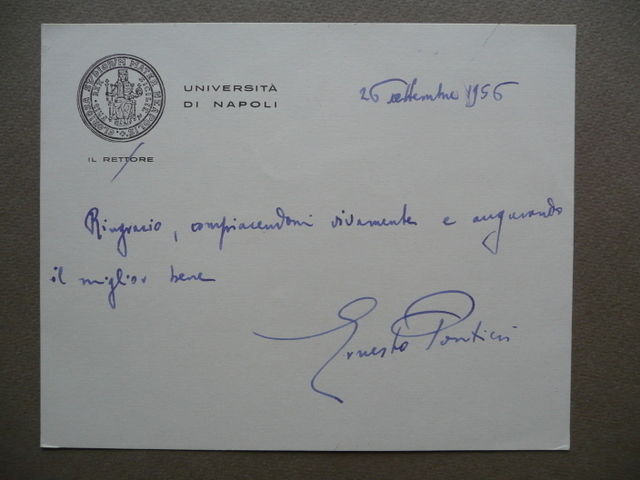 UNIVERSITÀ
DI NAPOLI
26 settembre 1956
IL RETTORE
Ringrazio, compiacendomi vivamente e augurando
il miglior bene
Ernesto Pontieri